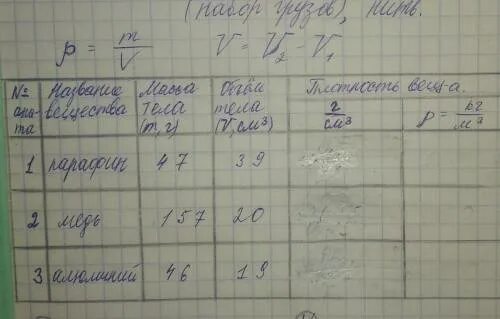 (набор грузов), нить.
ρ = m/V V = V₂ - V₁
№ опы-та Название вещества Масса тела (m, г) Объём тела (V, см³) Плотность вещ-а. г/см³ ρ = кг/м³
1 парафин 47 39
2 медь 157 20
3 алюминий 46 19